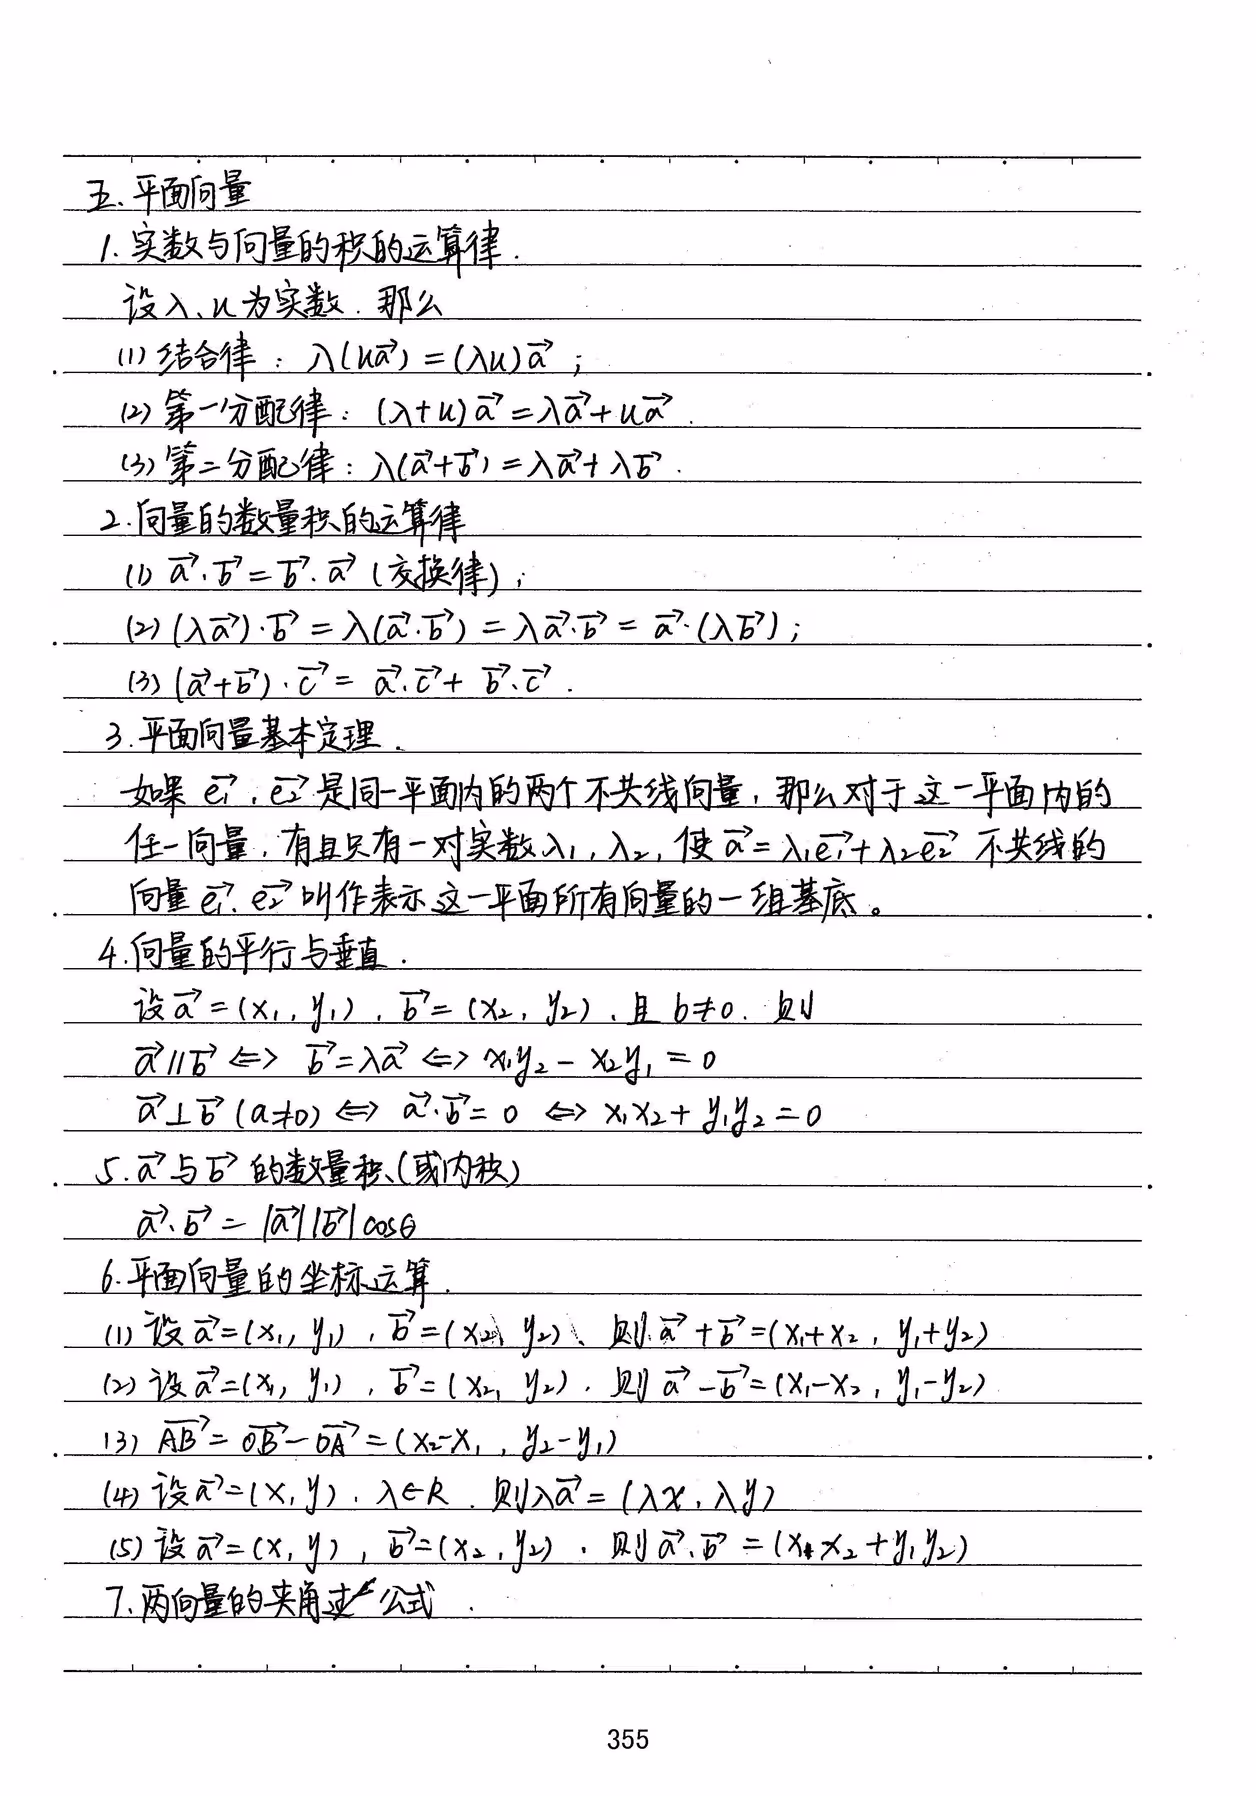 五.平面向量
1.实数与向量的积的运算律.
设λ、u为实数.那么
(1)结合律:λ(u\vec{a})=(λu)\vec{a};
(2)第一分配律:(λ+u)\vec{a}=λ\vec{a}+u\vec{a}.
(3)第二分配律:λ(\vec{a}+\vec{b})=λ\vec{a}+λ\vec{b}.
2.向量的数量积的运算律
(1)\vec{a}·\vec{b}=\vec{b}·\vec{a}(交换律);
(2)(λ\vec{a})·\vec{b}=λ(\vec{a}·\vec{b})=λ\vec{a}·\vec{b}=\vec{a}·(λ\vec{b});
(3)(\vec{a}+\vec{b})·\vec{c}=\vec{a}·\vec{c}+\vec{b}·\vec{c}.
3.平面向量基本定理.
如果\vec{e₁},\vec{e₂}是同一平面内的两个不共线向量,那么对于这一平面内的
任一向量,有且只有一对实数λ₁,λ₂,使\vec{a}=λ₁\vec{e₁}+λ₂\vec{e₂}不共线的
向量\vec{e₁}、\vec{e₂}叫作表示这一平面所有向量的一组基底。
4.向量的平行与垂直.
设\vec{a}=(x₁,y₁),\vec{b}=(x₂,y₂),且b≠0.则
\vec{a}∥\vec{b}⇔\vec{b}=λ\vec{a}⇔x₁y₂-x₂y₁=0
\vec{a}⊥\vec{b}(a≠0)⇔\vec{a}·\vec{b}=0⇔x₁x₂+y₁y₂=0
5.\vec{a}与\vec{b}的数量积(或内积)
\vec{a}·\vec{b}=|\vec{a}||\vec{b}|cosθ
6.平面向量的坐标运算.
(1)设\vec{a}=(x₁,y₁),\vec{b}=(x₂,y₂),则\vec{a}+\vec{b}=(x₁+x₂,y₁+y₂)
(2)设\vec{a}=(x₁,y₁),\vec{b}=(x₂,y₂).则\vec{a}-\vec{b}=(x₁-x₂,y₁-y₂)
(3)\vec{AB}=\vec{OB}-\vec{OA}=(x₂-x₁,y₂-y₁)
(4)设\vec{a}=(x,y),λ∈R.则λ\vec{a}=(λx,λy)
(5)设\vec{a}=(x,y),\vec{b}=(x₂,y₂),则\vec{a}·\vec{b}=(x₁x₂+y₁y₂)
7.两向量的夹角公式.
355